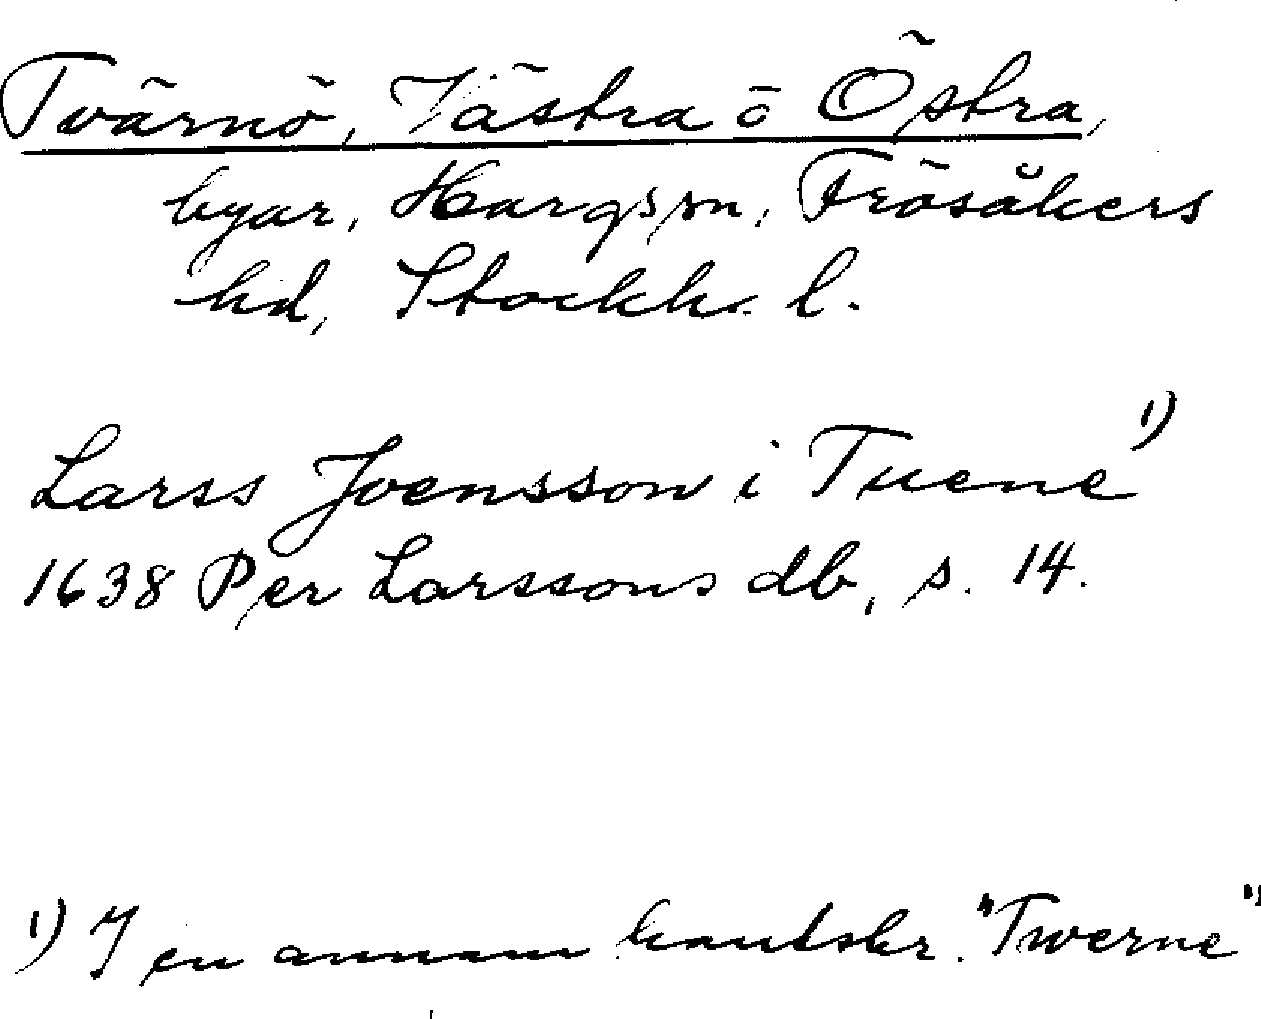 Tvärnö, Västra o Östra,
byar, Hargs sn, Frösåkers
hd, Stockh. l.
Larss Joensson i Tuene 1)
1638 Per Larssons db, s. 14.
1) I en annan handskr. "Twerne"